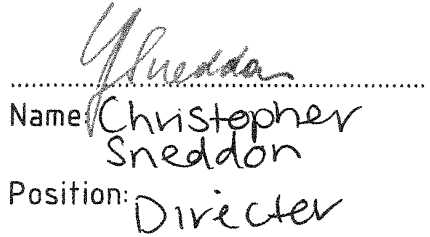 Sneddon
Name: Christopher
Sneddon
Position: Director